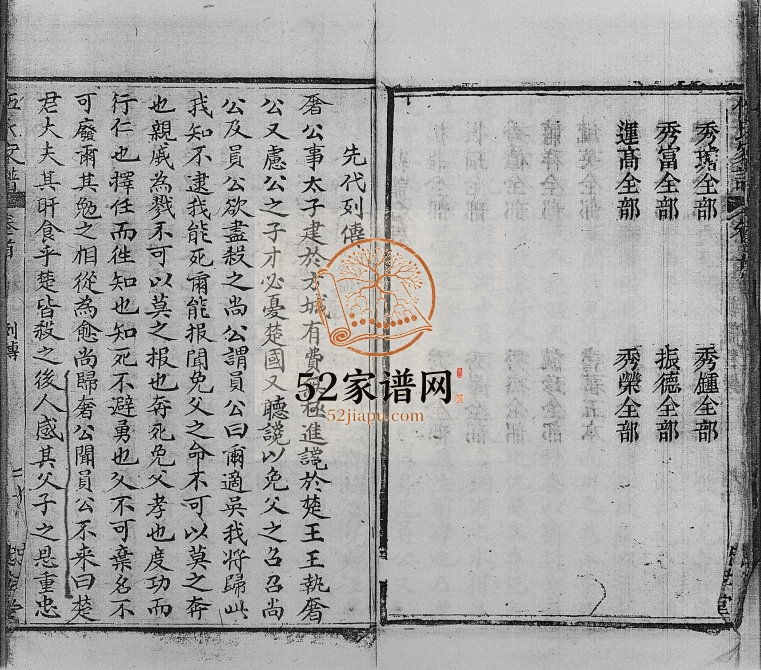 秀瑛全部
秀鍾全部
秀富全部
振德全部
運高全部
秀榮全部
先代列傳
奢公事太子建於方城有費無極進讒於楚王王執奢
公又慮公之子才必憂楚國又聽讒以免父之召召尚
公及員公欲盡殺之尚公謂員公曰爾適吳我將歸此
我知不逮我能死爾能報聞免父之命不可以莫之奔
也親戚為戮不可以莫之報也奔死免父孝也度功而
行仁也擇任而徃知也知死不避勇也父不可棄名不
可廢爾其勉之相從為愈尚歸奢公聞員公不来曰楚
君大夫其旰食乎楚皆殺之後人感其父子之恩重忠
卷首
列傳
52家谱网
52jiapu.com